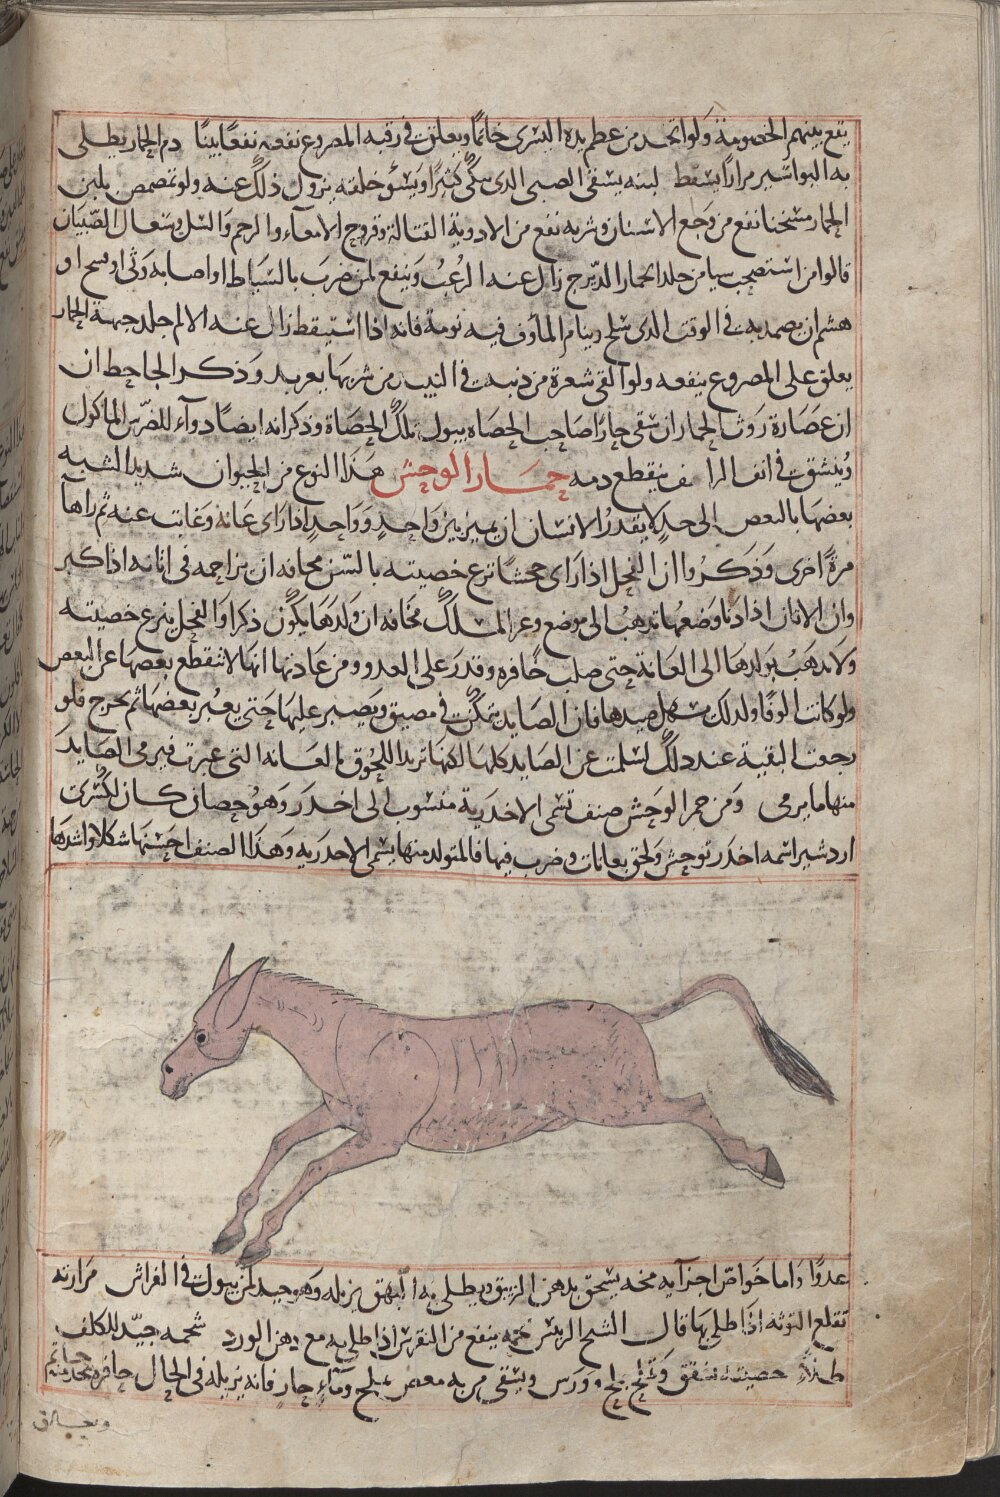 يقع بينهم الخصومة ولو اتخذ من عظم يده اليسرى خاتما ويعلق فى رقبه المصروع نفعه نفعا بينا دم الحمار يطلى
به البواسير مرارا يسقط لبنه يسقى الصبى الذى يبكى كثيرا ويسؤ خلقه يزول ذلك عنه ولو تمضمض بلبن
الحمار مسخنا نفع من وجع الاسنان وشربه نفع من الادوية القتالة وقروح الامعاء والرحم والسل وسعال الصبيان
قالوا من استصحب سيا من جلد الحمار الديرج زال عنه الرعب وينفع لمن ضرب بالسياط او اصابه وثى او سحج او
هشم ان يضمد به فى الوقت الذى سلخ وينام الماوف فيه نومة فانه اذا استيقظ زال عنه الالم جلد جبهة الحمار
يعلق على المصروع ينفعه ولو القى شعرة من ذنبه فى النبيذ من شربها يعربد وذكر الجاحظ ان
ان عصارة روث الحمار ان سقى حارا صاحب الحصاه يبول تلك الحصاة وذكر انه ايضا دواء للضرس الماكول
وينشق فى انف الراعف ينقطع دمه حمار الوحش هذا النوع من الحيوان شديد الشبه
بعضها بالبعض الى حد لا يقدر الانسان ان يميز بين واحد وواحد اذا راى عانة وغابت عنه ثم راها
مرة اخرى وذكروا ان الفحل اذا راى جحشا نزع خصيته بالسن مخافه ان يزاحمه فى اتانه اذا كبر
وان الاتان اذا دنا وضعها تذهب الى موضع وعر المسلك مخافه ان ولدها يكون ذكرا والفحل ينزع خصيته
ولا تذهب بولدها الى العانة حتى صلب حافره وقدر على العدو ومن عادتها انها لا تنقطع بعضها عن البعض
ولو كانت الوفا ولذلك سهل صيدها فان الصايد يتمكن فى مضيق ويصبر عليها حتى يعبر بعضها ثم يخرج فلو
رجعت البقية عند ذلك لسلمت عن الصايد كلها لكنها تريد اللحوق بالعانه التى عبرت فيرمى الصايد
منها ما يرمى ومن حمر الوحش صنف تسمى الاخدرية منسوب الى اخدر وهو حصان كان لكسرى
اردشير اسمه اخدر توحش ولحق بعانات وضرب فيها فالمتولد منها يسمى الاخدريه وهذا الصنف احسنها شكلا واشدها
عدوا واما خواص اجزآيه مخه يسحق بدهن الزيبق ويطلى به البهق يزيله وهو جيد لمن يبول فى الفراش مرارته
تقلع التوثه اذا طلى بها قال الشيخ الرئيس نفعه ينفع من النقرس اذا طلى به مع دهن الورد شحمه جيد للكلف
طلاء خصيته تشقق وتملح بملح وورس ويسقى من به مغص بملح وماء حار فانه يزيله فى الحال حافره يتخذ منه خاتم
ويعلق